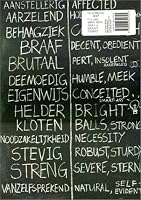 AANSTELLERIG AFFECTED
AARZELEND
BEHAAGZIEK
BRAAF DECENT, OBEDIENT
BRUTAAL PERT, INSOLENT
DEEMOEDIG HUMBLE, MEEK
EIGENWIJS
HELDER BRIGHT
KLOTEN BALLS, STRONG
NOODZAKELIJKHEID NECESSITY
STEVIG ROBUST, STURDY
STRENG SEVERE, STERN
VANZELFSPREKEND NATURAL, SELF-
EVIDENT